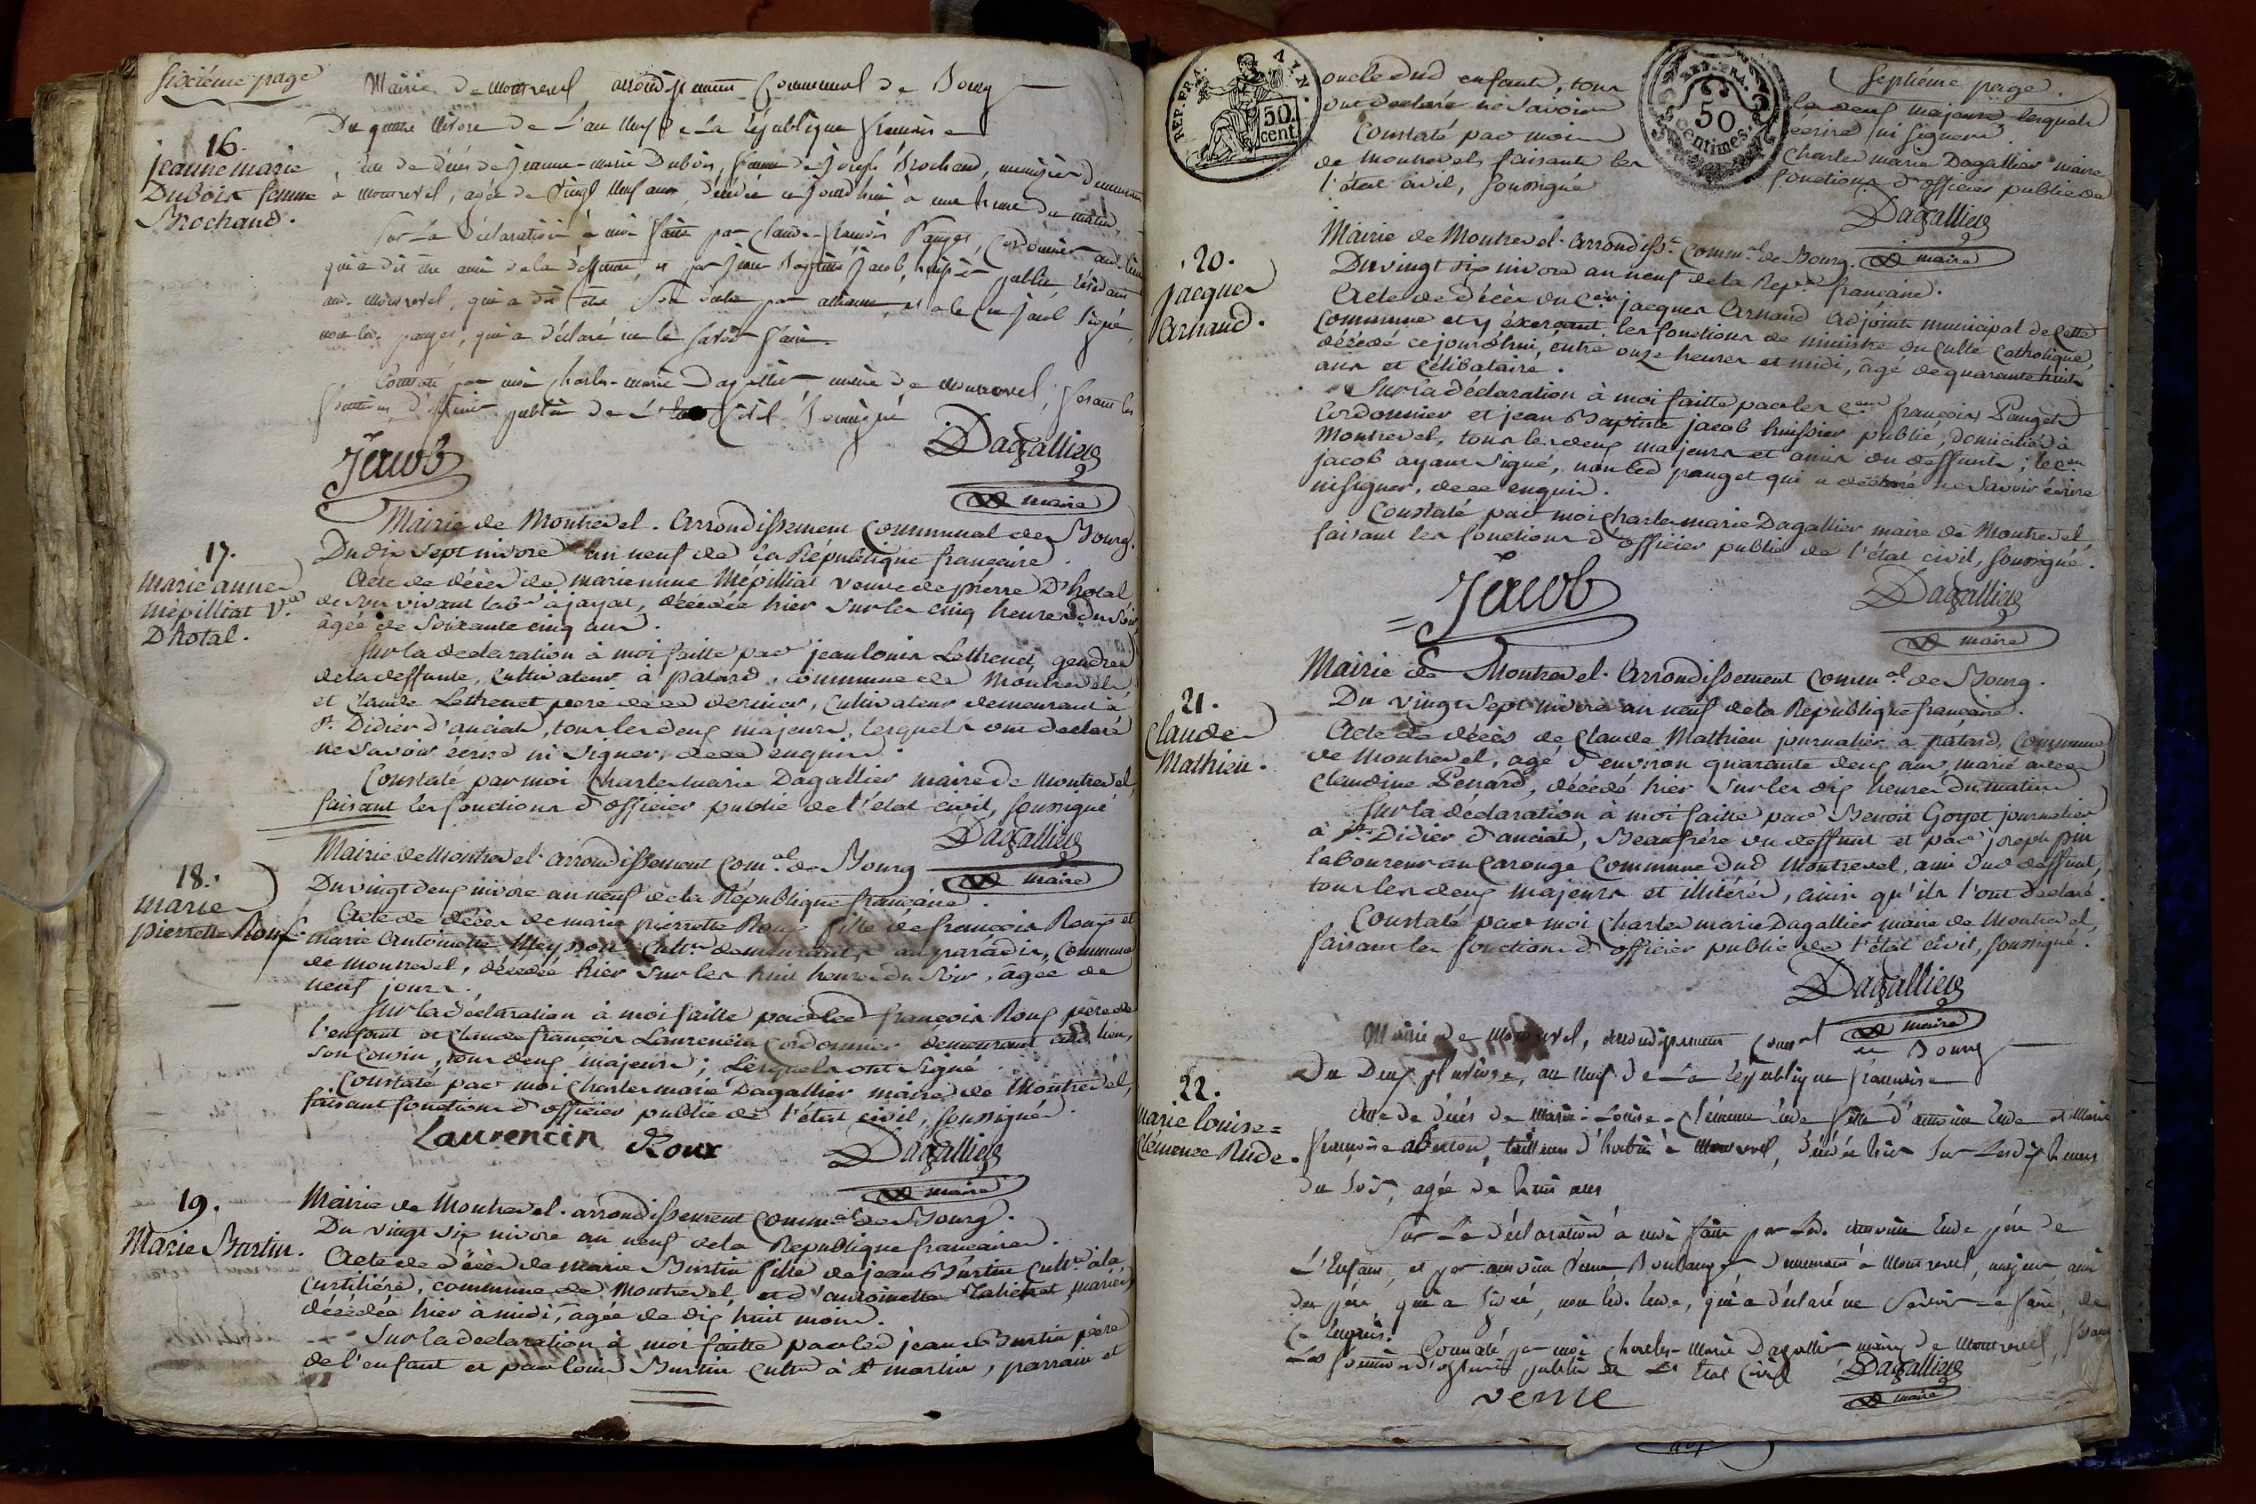 Sixiéme page
Mairie de montrevel, arrondissement Communal de Bourg
Du quinze Nivose de L'an Neuf de La République francaise
16.
jeanne marie
Dubois femme
Brochand.
acte de décès de jeanne-marie Dubois, femme de joseph Brochand, menuisier demeurant
a montrevel, agée de vingt neuf ans, décédée ce jourd'hui à une heure du matin,
Sur La déclaration à moi faitte par Claude-françois Panget, Cordonnier aud. lieu
qui a dit être ami de la deffunte, et par jean Baptiste jacob, huissier public résidant
aud. montrevel, qui a dit être son oncle par alliance, et a le Cen jacob signé
non led. panget, qui a déclaré ne le savoir faire
Constaté par moi Charles-marie Dagallier maire de montrevel, faisant les
fonctions d'officier public de L'Etat Civil, soussigné
Jacob
Dagallier
maire
Mairie de Montrevel. Arrondissement Communal de Bourg.
17.
marie anne
mépilliat Ve
D'hotal.
Du dix sept nivose an neuf de la République francaise.
Acte de décès de marie anne Mépilliat veuve de pierre D'hotal
de son vivant labr à jayat, décédée hier sur les cinq heures du soir,
âgée de soixante cinq ans.
Sur la déclaration à moi faitte par jean louis Lethenet, gendre
de la deffunte, cultivateur à patard, commune de Montrevel
et Claude Lethenet pere de ce dernier, cultivateur demeurant à
St. Didier d'auciat, tous les deux majeurs, lesquels ont déclaré
ne savoir écrire ni signer, de ce enquis.
Constaté par moi Charle marie Dagallier maire de montrevel,
faisant les fonctions d'officier public de l'état civil, soussigné
Dagallier
maire
Mairie de Montrevel. arrondissement Com.al de Bourg
18.
marie
pierrette Roux
Du vingt deux nivose an neuf de la République francaise.
Acte de décès de marie pierrette Roux fille de françois Roux et
marie Antoinette Meysson cultrs demeurants au paradis, commune
de montrevel, décédée hier sur les huit heures du soir, agée de
neuf jours.
Sur la déclaration à moi faitte par led françois Roux père de
l'enfant et Claude françois Laurencin cordonnier demeurant aud. lieu,
son cousin, tous deux majeurs; lesquels ont signé.
Constaté par moi Charles marie Dagallier maire de Montrevel,
faisant fonctions d'officier public de l'état civil, soussigné.
Laurencin Roux
Dagallier
maire
19.
Marie Burtin.
Mairie de Montrevel. arrondissement Comm.al de Bourg.
Du vingt six nivose an neuf de la République francaise.
Acte de décès de marie Burtin fille de jean Burtin cultr à la
curtilière, commune de Montrevel, et d'antoinette mariés,
décédée hier à midi, agée de dix huit mois.
Sur la declaration à moi faitte par led jean Burtin père
de l'enfant et par louis Burtin cultr à st martin, parrain et
REP. FRA. AYN.
50. cent.
REP. FRA.
50 centimes.
Septiéme page.
oncle dud enfant, tous les deux majeurs lesquels
ont declaré ne savoir écrire ni signer.
Constaté par moi Charles marie Dagallier maire
de montrevel, faisant les fonctions d'officier public de
l'état civil, soussigné
Dagallier
maire
Mairie de Montrevel. arrondisst. comm.al de Bourg.
20.
jacques
Arnaud.
Du vingt six nivose an neuf de la Repe. francaise.
Acte de décès du Cen jacques Arnaud Adjoint municipal de cette
commune et y éxercant les fonctions de ministre du culte Catholique,
décédé ce jourd'hui, entre onze heures et midi, âgé de quarante huit
ans et célibataire.
Sur la déclaration à moi faitte par les Cens françois Panget
Cordonnier et jean Baptiste jacob huissier public, domiciliés à
Montrevel, tous les deux majeurs et amis du deffunt; le Cen
jacob ayant signé, non led panget qui a déclaré ne savoir écrire
ni signer, de ce enquis.
Constaté par moi Charles marie Dagallier maire de Montrevel
faisant les fonctions d'officier public de l'état civil, soussigné.
Jacob
Dagallier
maire
Mairie de Montrevel. Arrondissement Comm.al de Bourg.
21.
Claude
Mathieu.
Du vingt sept nivose an neuf de la République francaise.
Acte de décès de Claude Mathieu journalier à patard, commune
de Montrevel, agé d'environ quarante deux ans, marié avec
Claudine Penard, décédé hier sur les dix heures du matin
Sur la déclaration à moi faitte par Benoit Goyot journalier
à St. Didier d'auciat, Beaufrére du deffunt et par joseph pin
laboureur au Carouge commune dud Montrevel, ami dud deffunt,
tous les deux majeurs et illitérés, ainsi qu'ils l'ont déclaré.
Constaté par moi Charles marie Dagallier maire de Montrevel,
faisant les fonctions d'officier public de l'état civil, soussigné.
Dagallier
maire
Mairie de montrevel, arrondissement Comm.al de Bourg
22.
marie louise=
clemence Rude.
Du Deux pluviose, an neuf de La République francaise
Acte de décès de marie-Louise-Clémence Rude fille d'antoine Rude et Marie
françoise, tailleur d'habits à Montrevel, décédée hier sur les dix heures
du soir, agée de huit ans
Sur La déclaration à moi faitte par led. antoine Rude père de
L'Enfant, et par antoine Verne Boulanger demeurant à Montrevel, majeur ami
du père, qui a signé, non led. Rude, qui a déclaré ne savoir le faire, de
Ce Enquis. Constaté par moi Charles-Marie Dagallier maire de Montrevel, faisant
Les fonctions d'officier public de L'Etat Civil
Dagallier
maire
verne